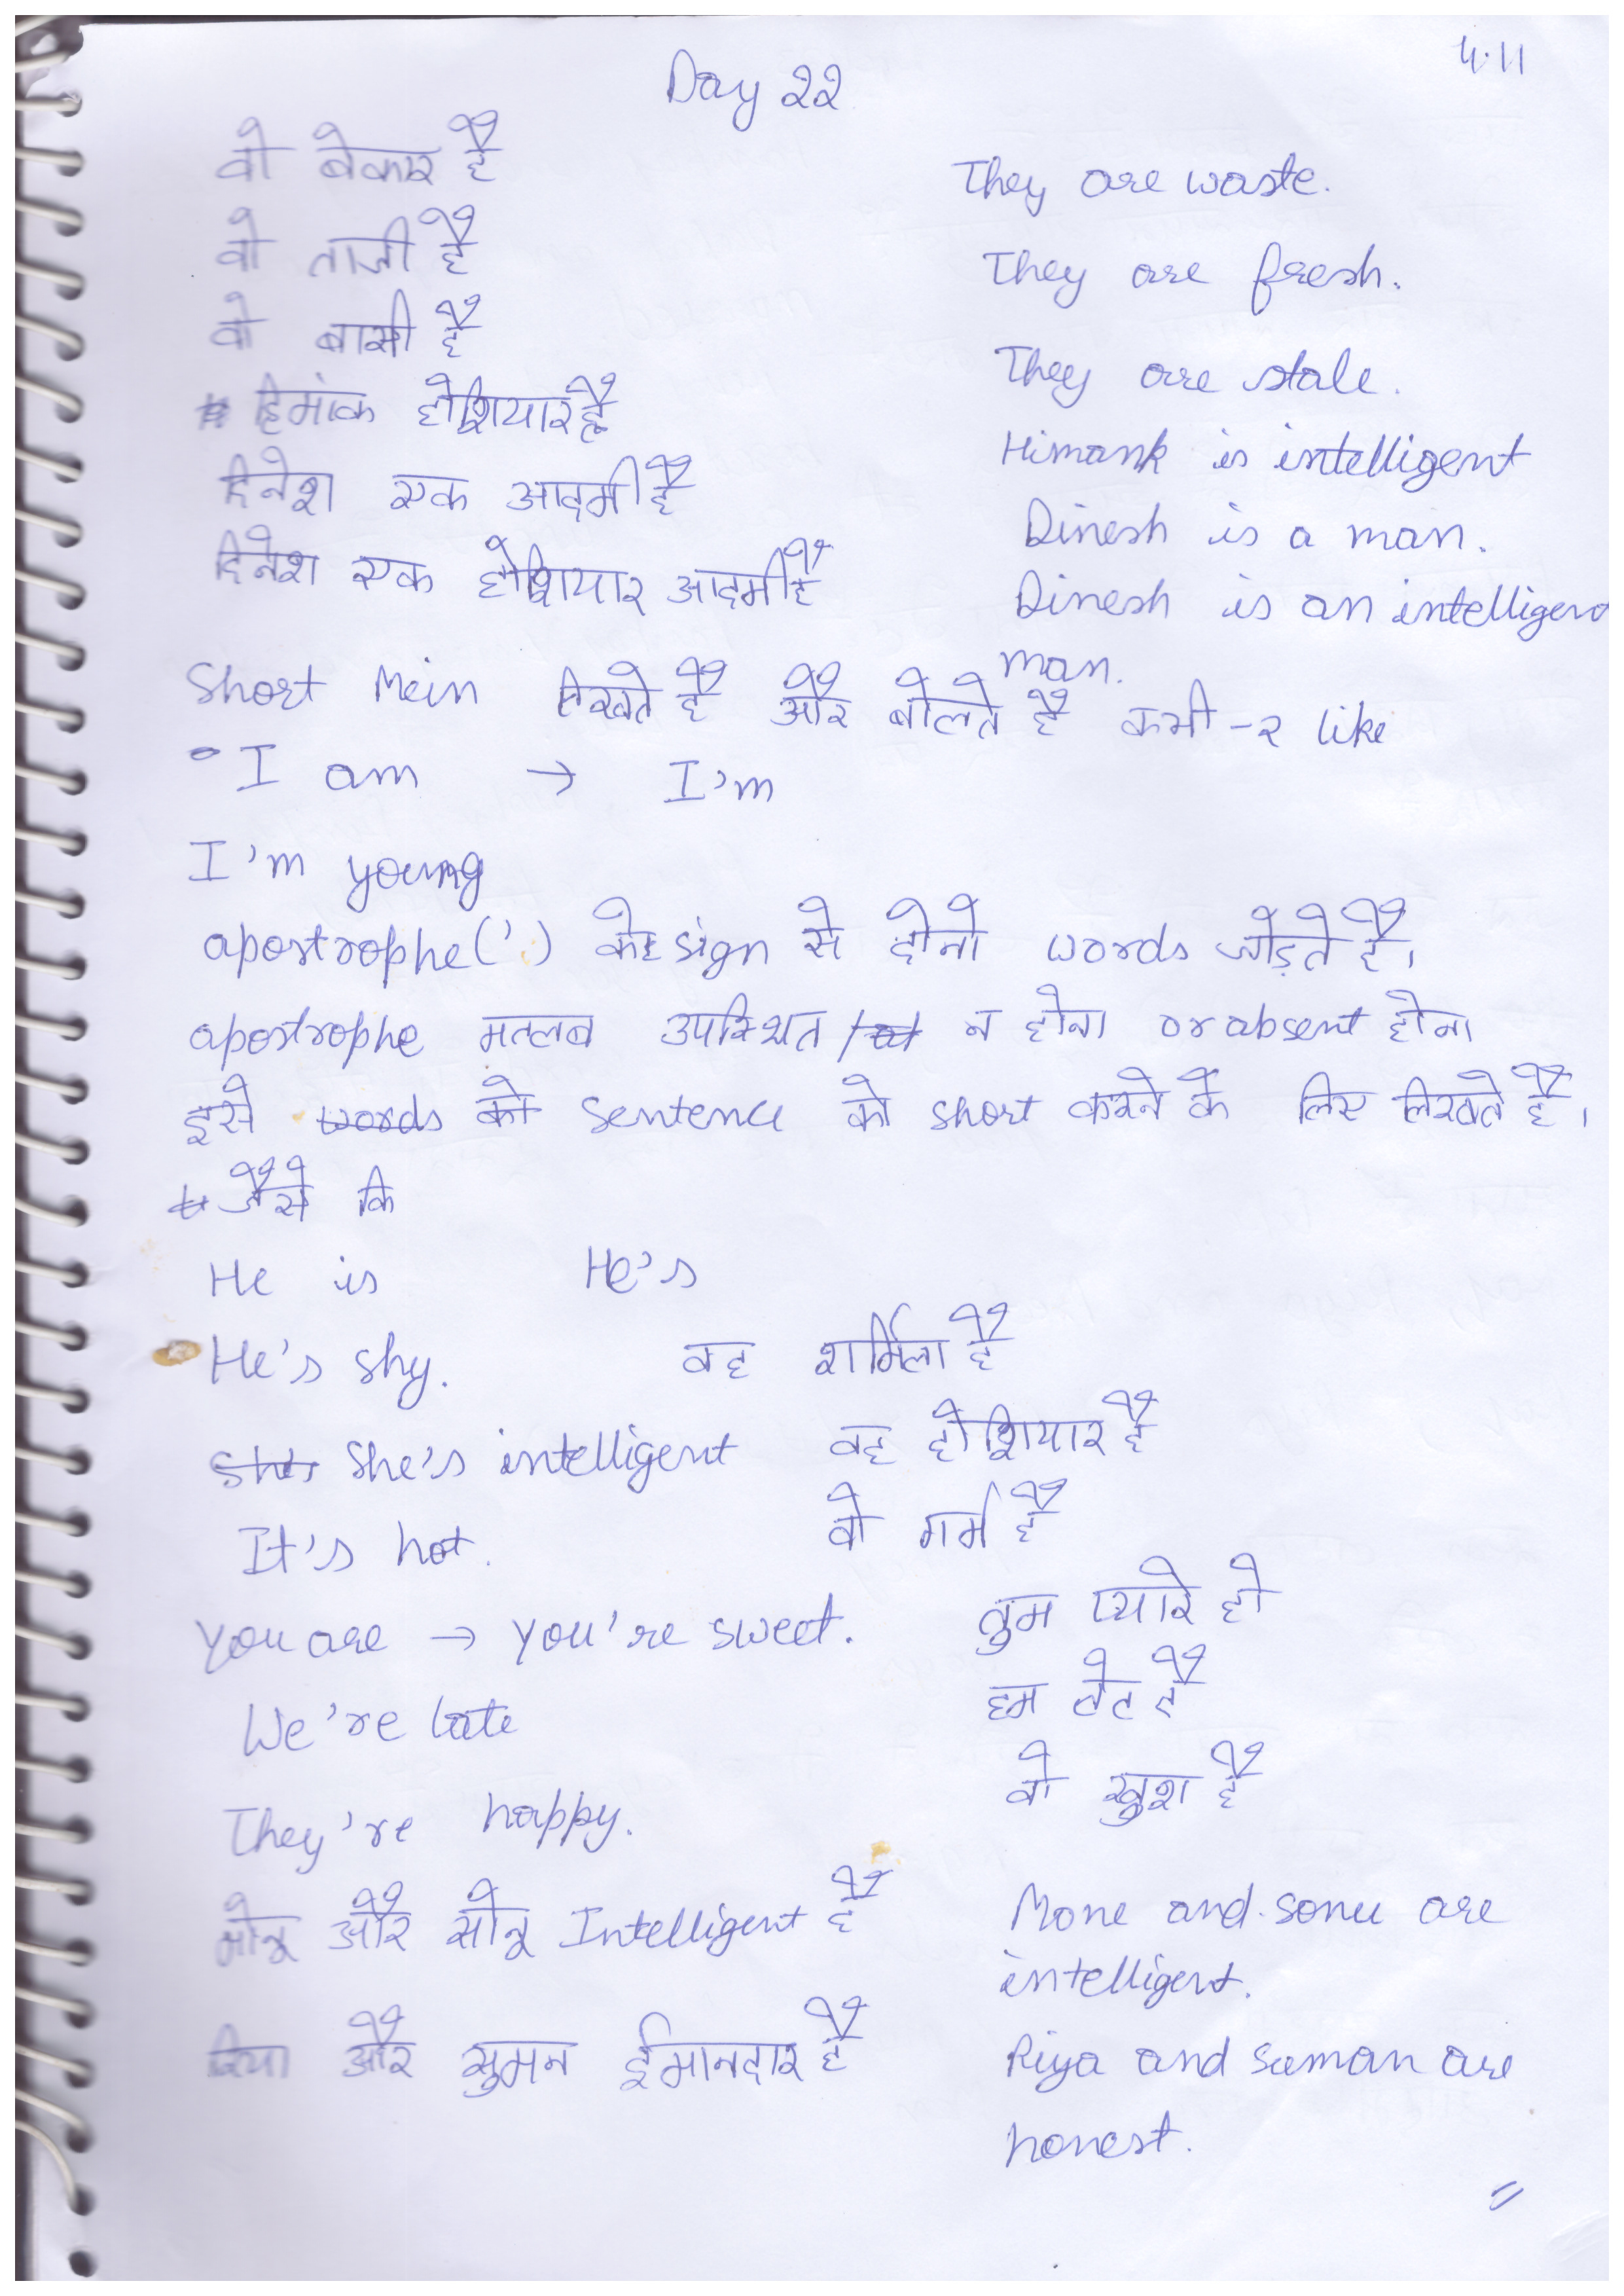 4.11
Day 22
वो बेकार है They are waste.
वो ताजी है They are fresh.
वो बासी है They are stale.
# हिमांक होशियार है Himank is intelligent
दिनेश एक आदमी है Dinesh is a man.
दिनेश एक होशियार आदमी है Dinesh is an intelligent
man.
Short Mein लिखते है और बोलते है कभी-२ like
I am → I'm
I'm young
apostrophe(') के sign से दोनो words जोड़ते है।
apostrophe मतलब उपस्थित / न होना or absent होना
इसे words को sentence को short करने के लिए लिखते है।
# जैसे कि
He is He's
He's shy. वह शर्मिला है
She's She's intelligent वह होशियार है
It's hot. वो गर्म है
You are → You're sweet. तुम प्यारे हो
We're late हम लेट है
They're happy. वो खुश है
मोनू और सोनू Intelligent है Mone and sonu are
intelligent.
रिया और सुमन ईमानदार है Riya and suman are
honest.